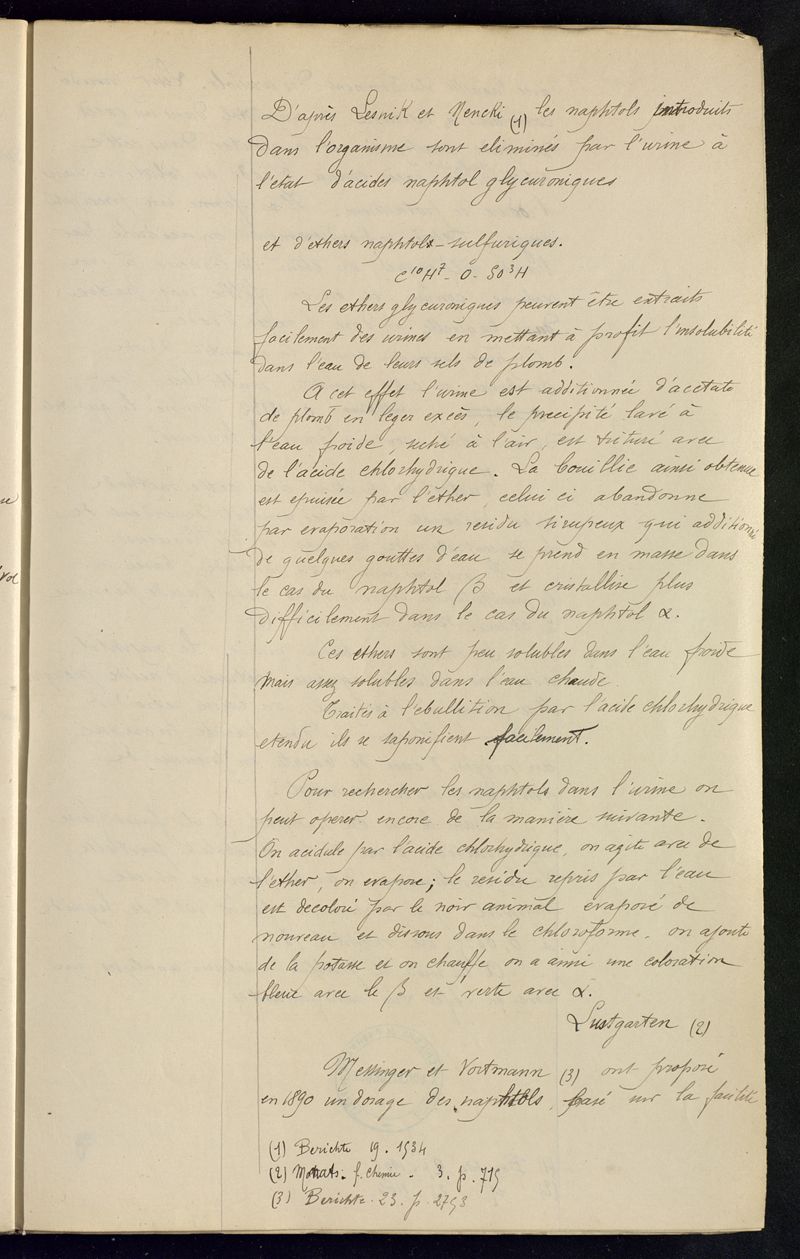 D'après Lesnik et Nencki (1) les naphtols introduits
dans l'organisme sont eliminés par l'urine à
l'etat d'acides naphtol glycuroniques
et d'ethers naphtols-sulfuriques.
C¹⁰H⁷ - O - SO³H
Les ethers glycuroniques peuvent être extraits
facilement des urines en mettant à profit l'insolubilité
dans l'eau de leurs sels de plomb.
A cet effet l'urine est additionnée d'acetate
de plomb en leger excès, le precipité lavé à
l'eau froide, seché à l'air, est trituré avec
de l'acide chlorhydrique. La bouillie ainsi obtenue
est epuisée par l'ether, celui ci abandonne
par evaporation un residu sirupeux qui additionné
de quelques gouttes d'eau se prend en masse dans
le cas du naphtol β et cristallise plus
difficilement dans le cas du naphtol α.
Ces ethers sont peu solubles dans l'eau froide
mais assez solubles dans l'eau chaude
Traités à l'ebullition par l'acide chlorhydrique
etendu ils se saponifient facilement.
Pour rechercher les naphtols dans l'urine on
peut operer encore de la maniere suivante.
On acidule par l'acide chlorhydrique, on agite avec de
l'ether, on evapore; le residu repris par l'eau
est decoloré par le noir animal evaporé de
nouveau et dissous dans le chloroforme. on ajoute
de la potasse et on chauffe on a ainsi une coloration
bleue avec le β et verte avec α.
Lustgarten (2)
Messinger et Vortmann (3) ont proposé
en 1890 un dosage des naphtols, basé sur la facilité
(1) Berichte 19. 1534
(2) Monats. f. Chemie - 3. p. 715
(3) Berichte. 23. p. 2753